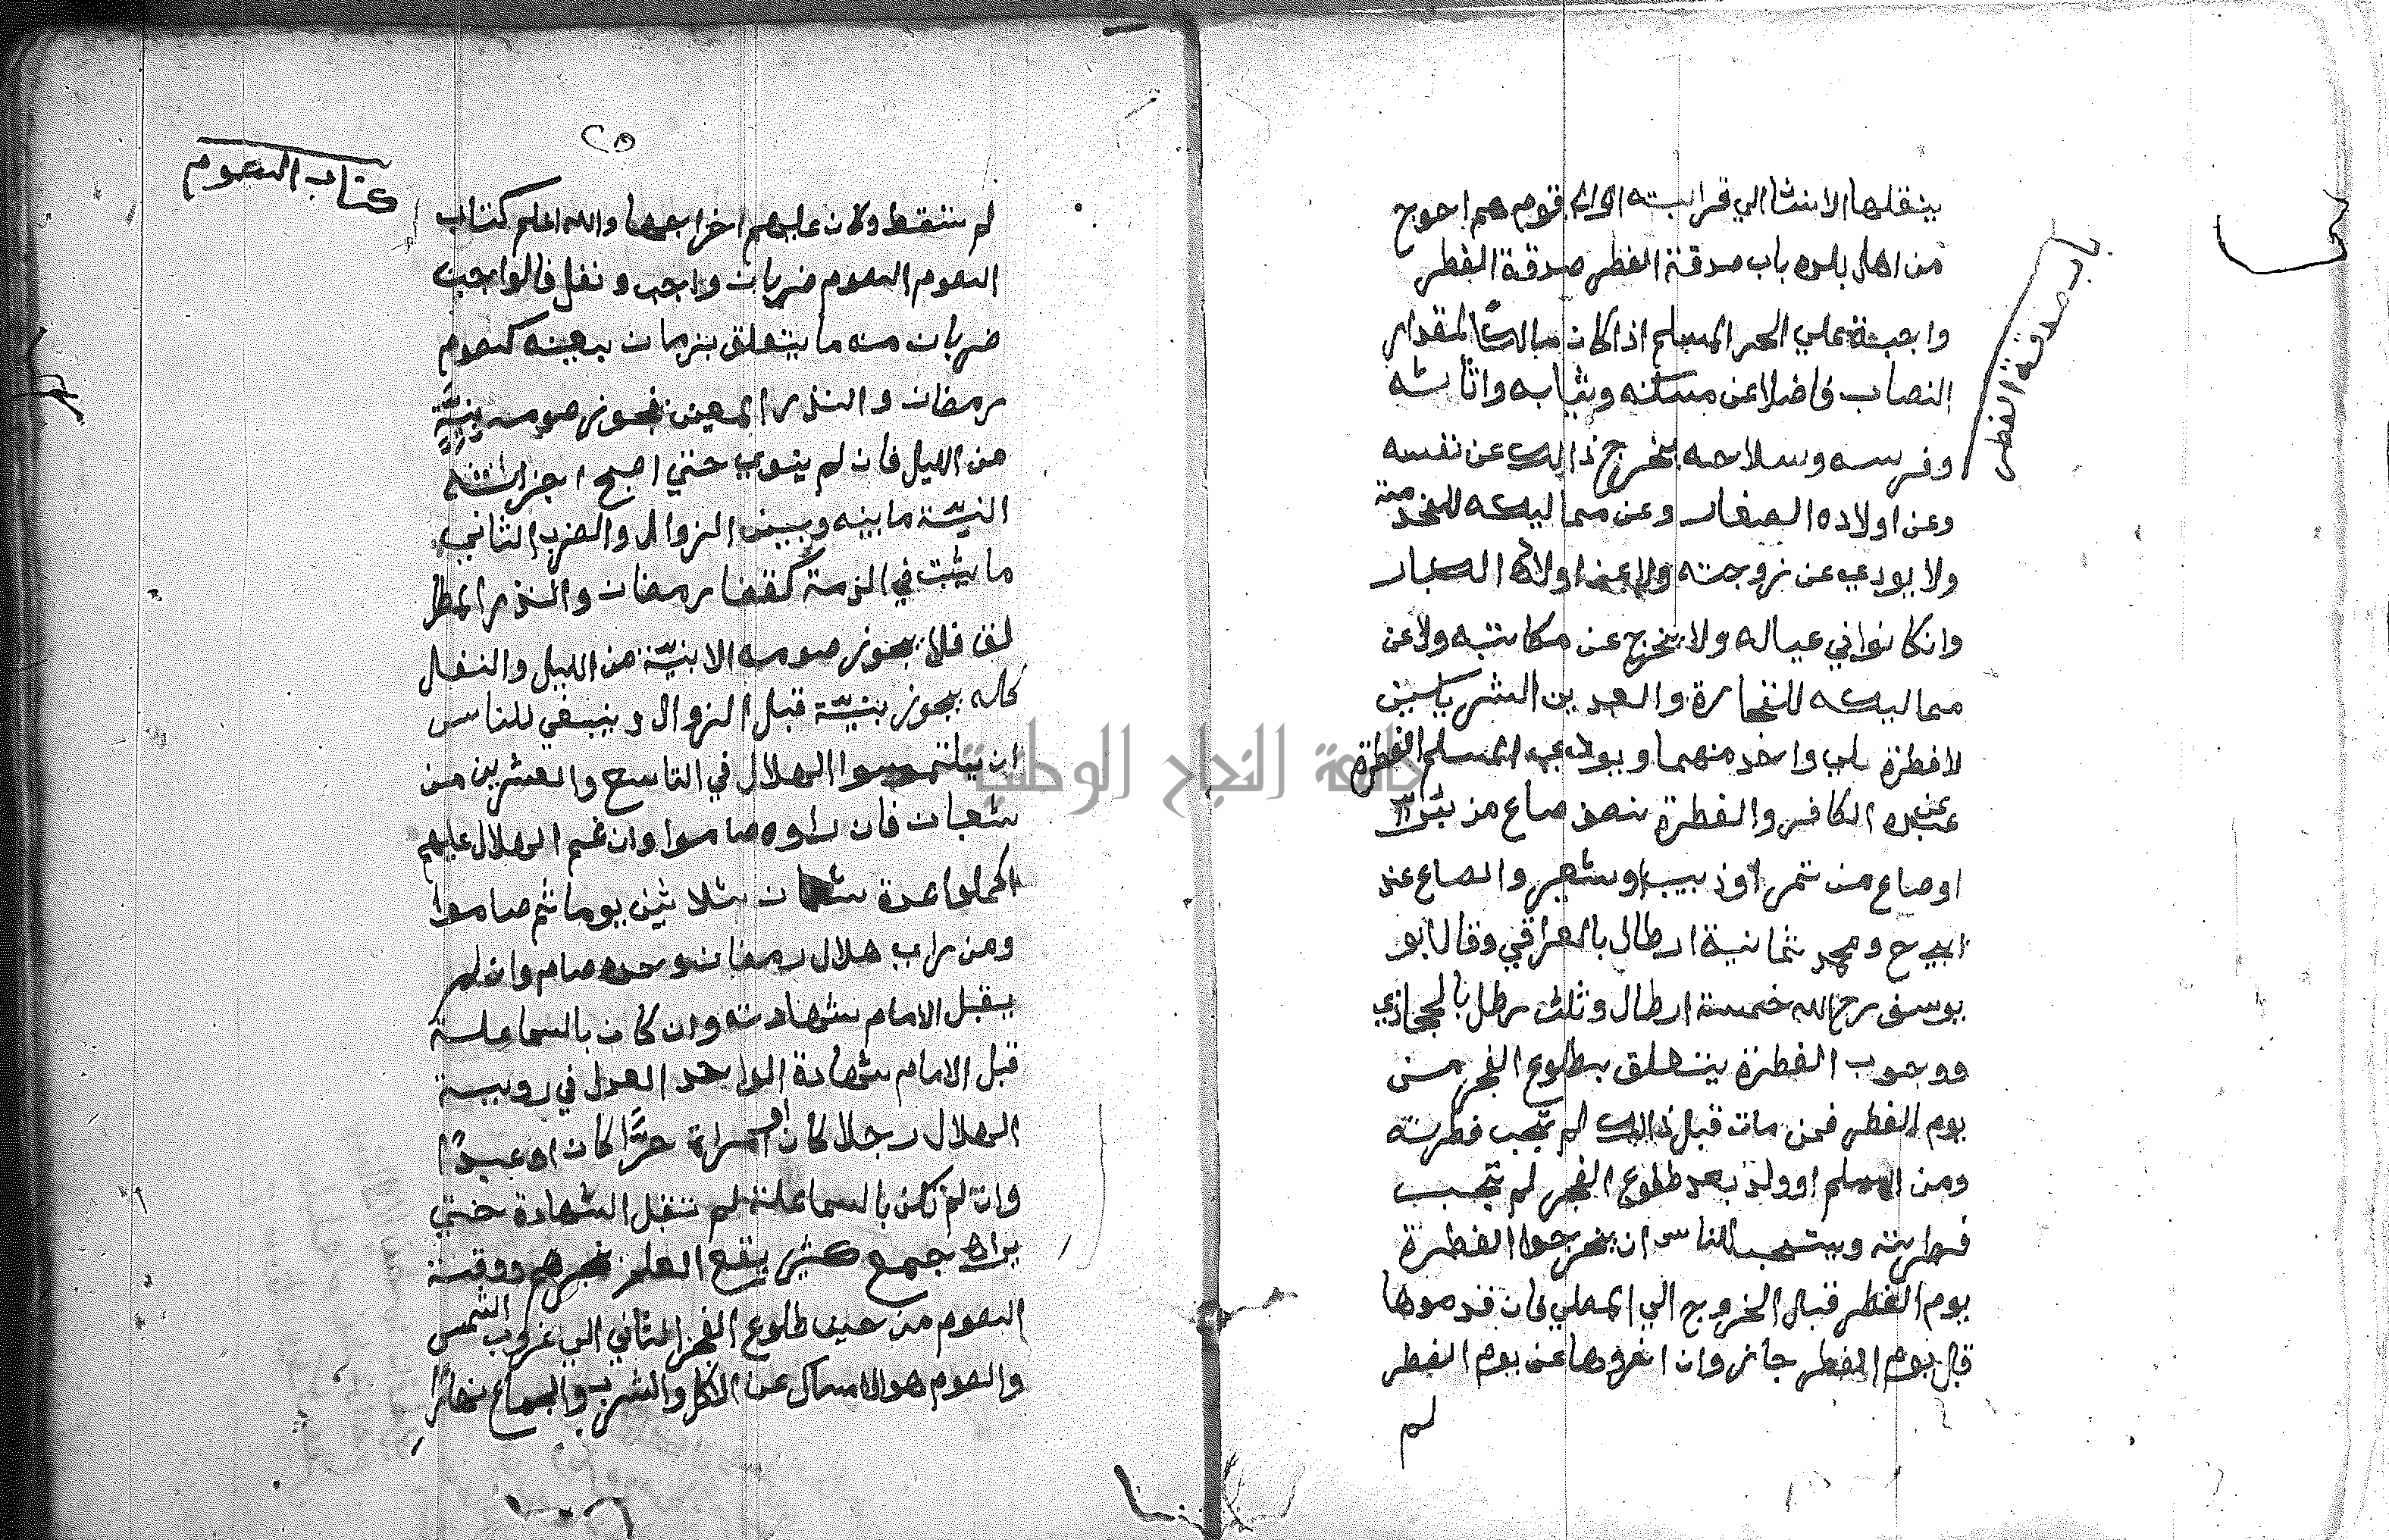 باب صدقة الفطر
ينقلها الانشا الي قرابته او الي قوم هم احوج
من اهل بلده باب صدقة الفطر صدقة الفطر
واجبة علي الحر المسلم اذا كان مالكًا لمقدار
النصاب فاضلا عن مسكنه وثيابه واثاثه
وفرسه وسلاحه يخرج ذالك عن نفسه
وعن اولاده الصغار وعن مماليكه للخدمة
ولا يودي عن زوجته ولا عن اولاده الكبار
وانكانوا في عياله ولا يخرج عن مكاتبه ولا عن
مماليكه للتجارة والعبد بين الشريكين
لا فطرة علي واحد منهما ويودي المسلم الفطرة
عن عبده الكافر والفطرة نصف صاع من بر
او صاع من تمر او زبيب او شعير والصاع عند
ابي ح ومحمد ثمانية ارطال بالعراقي وقال ابو
يوسف رح الله خمسة ارطال وثلث رطل بالحجازي
ووجوب الفطرة يتعلق بطلوع الفجر من
يوم الفطر فمن مات قبل ذالك لم تجب فطرته
ومن اسلم او ولد بعد طلوع الفجر لم تجب
فطرته ويستحب للناس ان يخرجوا الفطرة
يوم الفطر قبل الخروج الي المصلي فان قدموها
قبل يوم الفطر جاز وان اخروها عن يوم الفطر
لم
٢٥
كتاب الصوم
لم تسقط وكان عليهم اخراجها والله اعلم كتاب
الصوم الصوم ضربان واجب ونفل فالواجب
ضربان منه ما يتعلق بزمان بعينه كصوم
رمضان والنذر المعين فيجوز صومه بنيّةٍ
من الليل فان لم ينوي حتي اصبح اجزاته
النيّة ما بينه وبين الزوال والضرب الثاني
ما يثبت في الذمة كقضا رمضان والنذر المط
لق فلا يجوز صومه الا بنيّة من الليل والنفل
كله يجوز بنيّة قبل الزوال وينبغي للناس
ان يلتمسوا الهلال في التاسع والعشرين من
شعبان فان راوه صاموا وان غم الهلال عليهم
اكملوا عدة شعبان ثلاثين يوما ثم صاموا
ومن راي هلال رمضان وحده صام وان لم
يقبل الامام شهادته وان كان بالسما علة
قبل الامام شهادة الواحد العدل في روية
الهلال رجلا كان او امراة حرًّا كان او عبدًا
وان لم تكن بالسما علة لم تقبل الشهادة حتي
يراه جمع كثير يقع العلم بخبرهم ووقت
الصوم من حين طلوع الفجر الثاني الي غروب الشمس
والصوم هو الامساك عن الاكل والشرب والجماع نهارًا
جامعة النجاح الوطنية